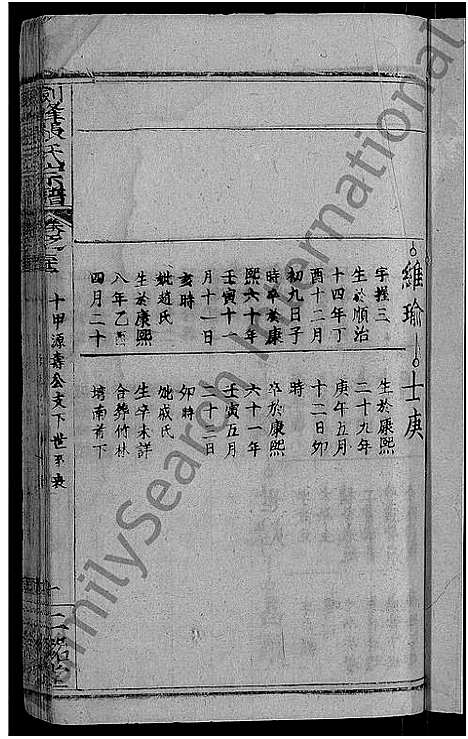 維瑜
字握三
生於順治
十四年丁
酉十二月
初九日子
時卒於康
熙六十年
壬寅十一
月十一日
亥時
妣趙氏
生於康熙
八年乙
四月二十
士庚
生於康熙
二十九年
庚午五月
十二日卯
時
卒於康熙
六十一年
壬寅五月
二十二日
卯時
妣成氏
生卒未詳
合葬竹林
塆南首下
氏宗譜
卷之五
十甲源壽公支下世系表
一
FamilySearch International